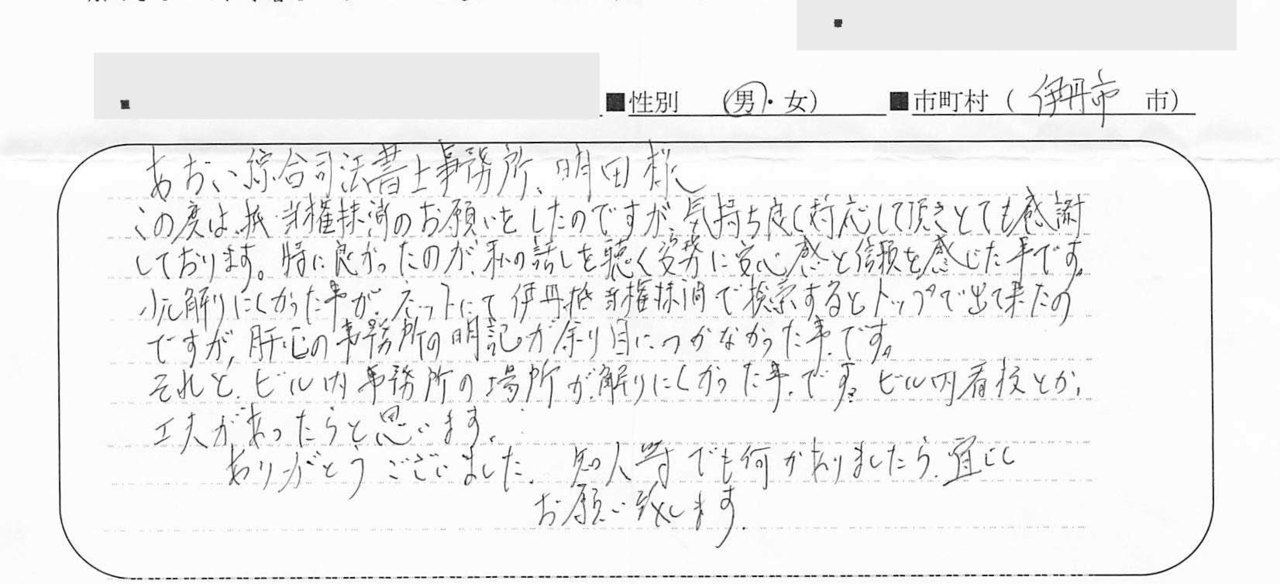 ■性別 （男・女） ■市町村（ 伊丹市 市）
あおい綜合司法書士事務所、明田様
この度は、抵当権抹消のお願いをしたのですが、気持ち良く対応して頂きとても感謝
しております。特に良かったのが、私の話しを聴く姿勢に安心感と信頼を感じた事です。
少し解りにくかった事が、ネットにて伊丹抵当権抹消で検索するとトップで出て来たの
ですが、肝心の事務所の明記が余り目につかなかった事です。
それと、ビル内事務所の場所が解りにくかった事です。ビル内看板とか、
工夫があったらと思います。
ありがとうございました。知人等でも何かありましたら、宜しく
お願い致します。